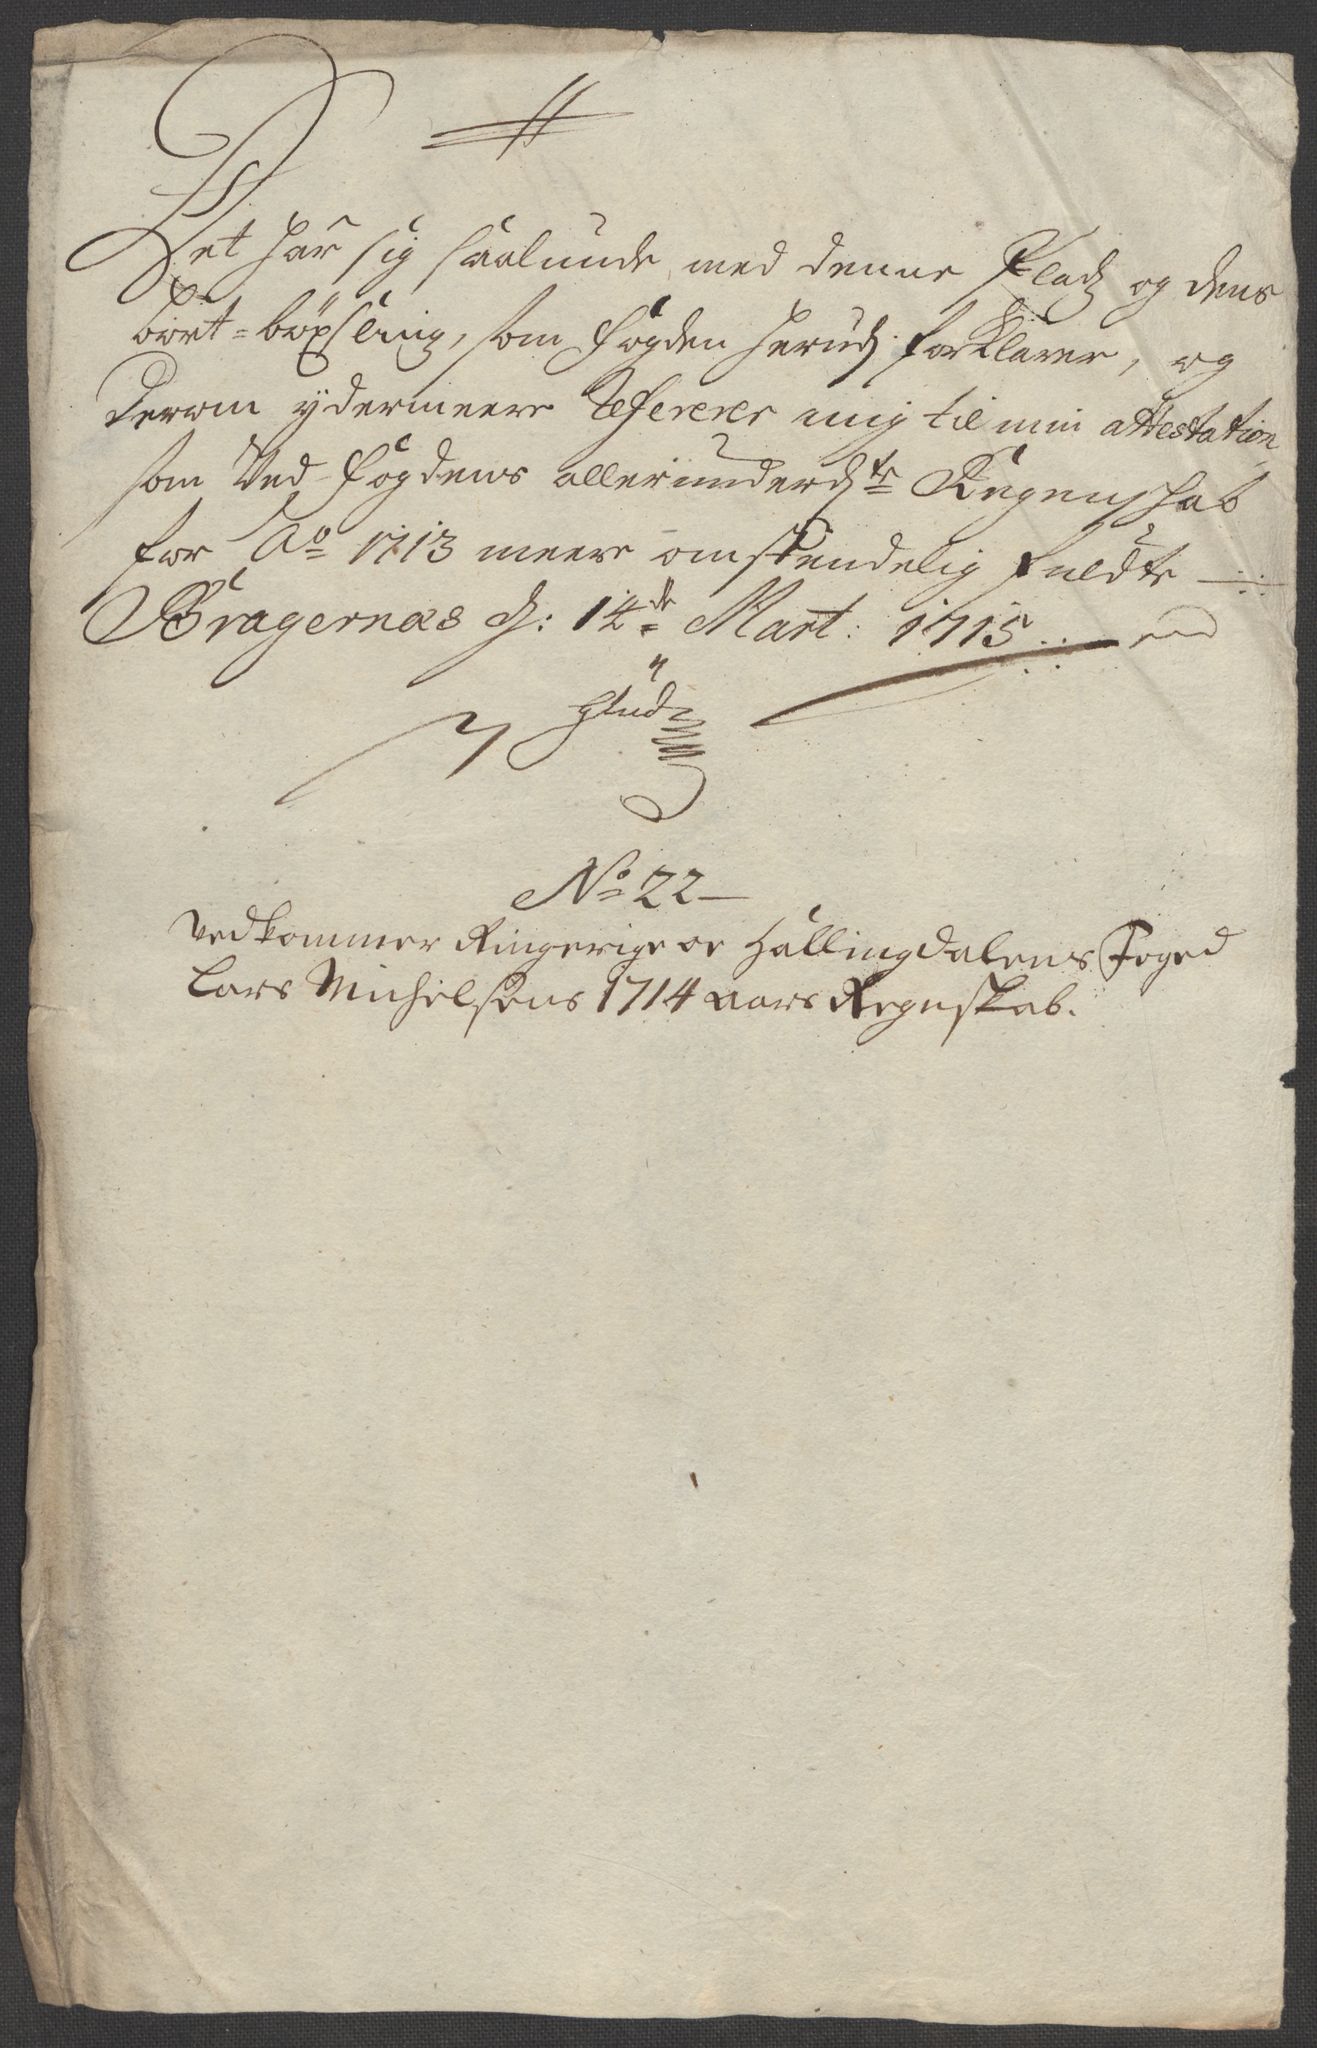 Det har sig saalunde med denne Pladz og dens
bort-böxling, som fogden herudj forklarer, og
derom ydermeere Refererer mig til min attestation
som Ved fogdens allerunderdte Regenschab
for Ao 1713 meere omstendelig fuldte
Bragernæs d: 14de Mart: 1715
No 22
vedkommer Ringerige oc Hallingdalens Foged
Lars Michelsens 1714 aars Regnskab.